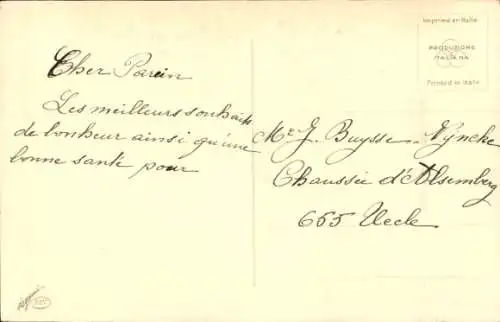 Imprimé en Italie
PRODUZIONE
ITALIANA
Printed in Italy
Cher Parain
Les meilleurs souhaits
de bonheur ainsi qu'une
bonne santé pour
Mr J. Buysse-Vijncke
Chaussée d'Alsemberg
655 Uccle